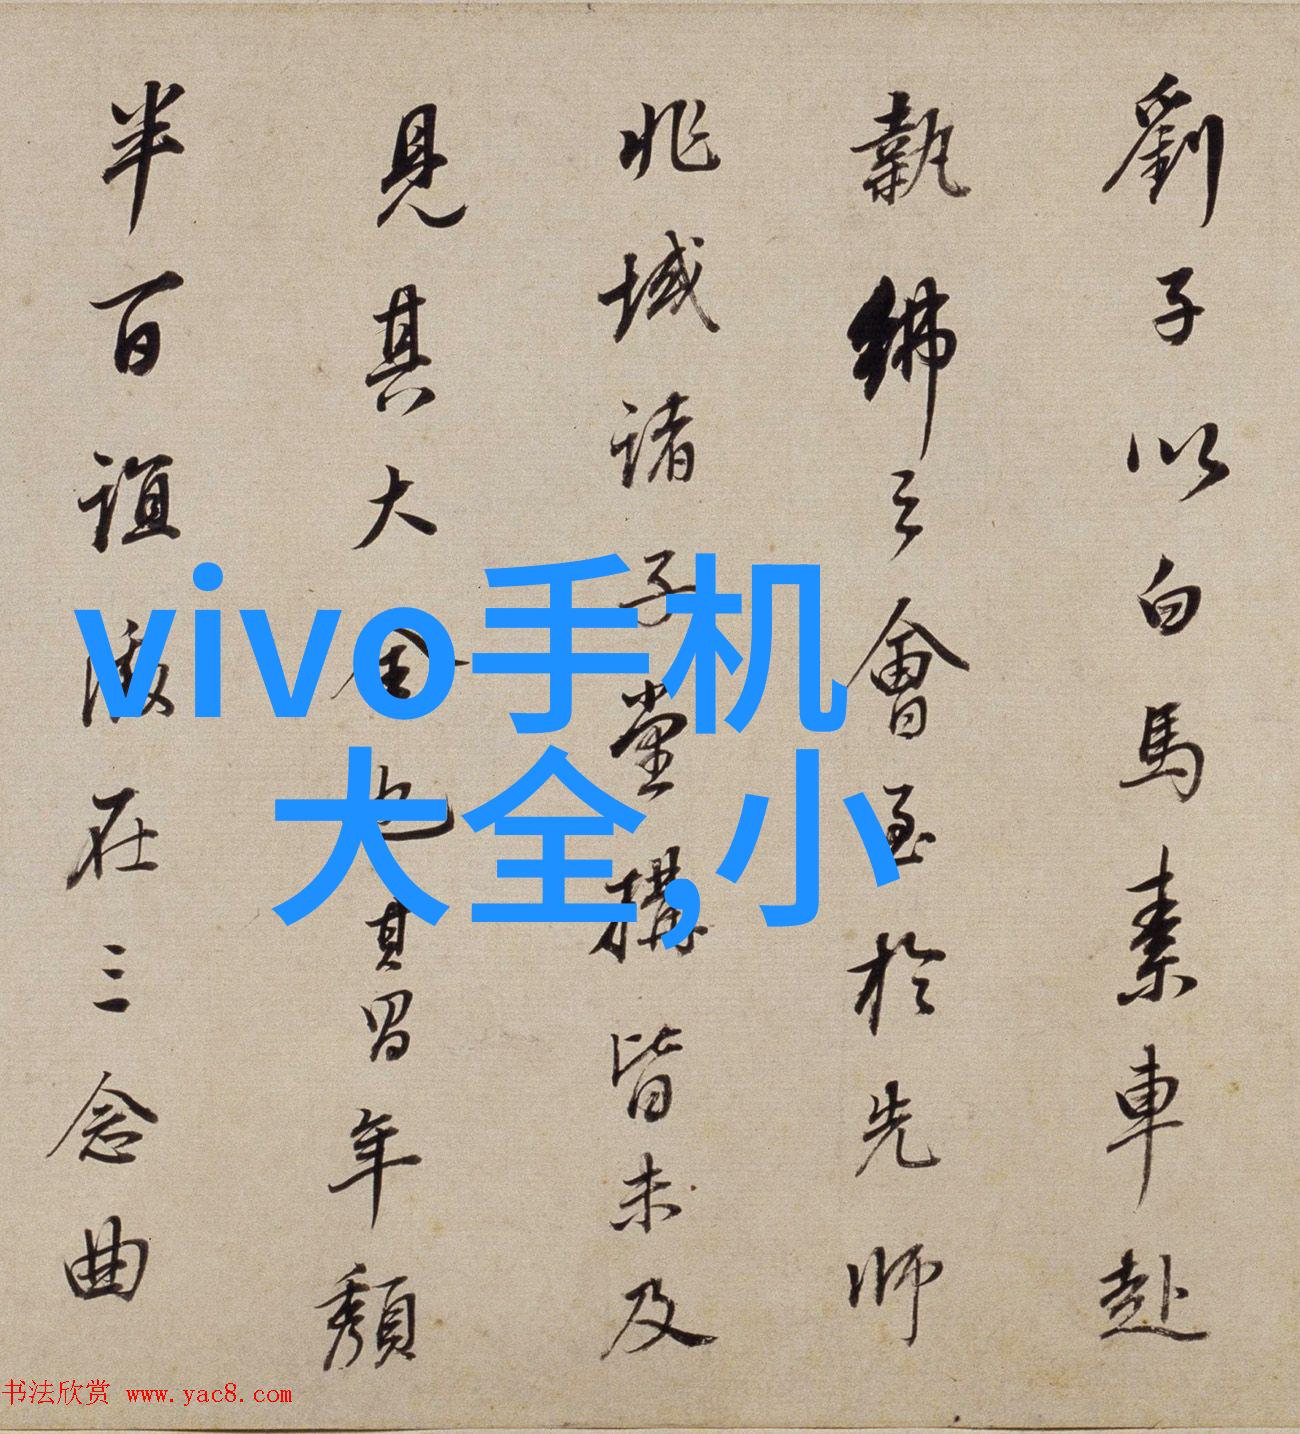 劉子以白馬素車赴
執紼之會至於先師
兆域諸子堂構皆未及
見其大全也其年頹
半百誼激在三念曲
vivo手机
大全,小
书法欣赏 www.yac8.com